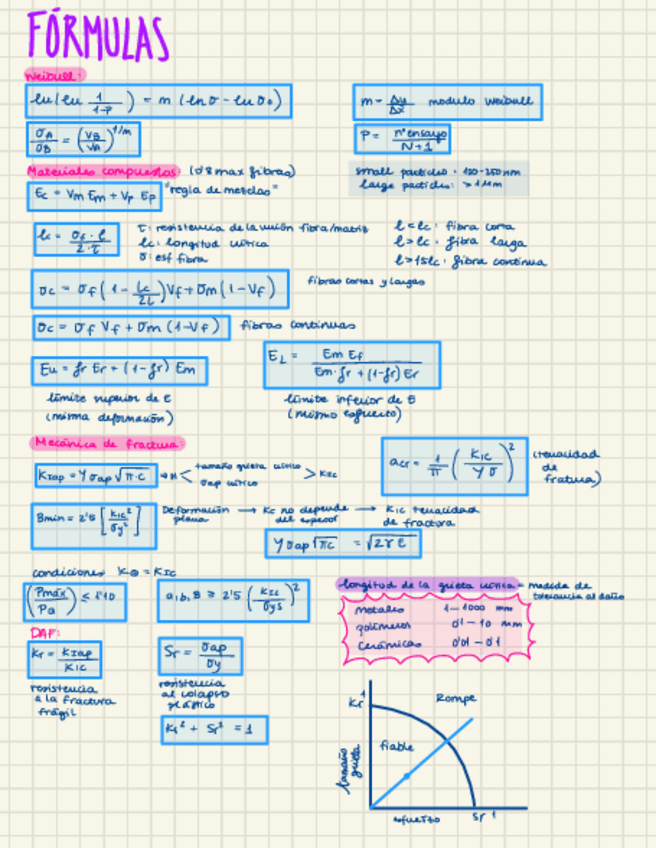 FÓRMULAS
Weibull:
ln(ln 1/(1-P)) = m (ln σ - ln σ₀)
m = Δy/Δx modulo weibull
σA/σB = (VB/VA)^1/m
P = nº ensayo/(N+1)
Materiales compuestos: (0'8 max fibras)
small particles: 120-250 nm
large particles: > 1 μm
Ec = Vm Em + Vp Ep "regla de mezclas"
lc = σf · l/(2·τ)
τ: resistencia de la unión fibra/matriz
lc: longitud crítica
σ: esf fibra
l=lc: fibra corta
l>lc: fibra larga
l>15lc: fibra continua
σc = σf (1 - lc/2l) Vf + σm (1-Vf) fibras cortas y largas
σc = σf Vf + σm (1-Vf) fibras continuas
Eu = fr Er + (1-fr) Em
EL = Em Ef/(Em·fr + (1-fr) Er)
límite superior de E
(misma deformación)
límite inferior de E
(mismo esfuerzo)
Mecánica de fractura:
KIap = Y σap √(π·c) → < tamaño grieta crítico > KIC
σap crítico
acr = 1/π (KIC/Yσ)²
(tenacidad
de
fractura)
Bmin = 2'5 [KIC²/σy²]
Deformación plana → Kc no depende del espesor → KIC tenacidad de fractura
Y σap √πc = √2γE
condiciones KQ = KIC
(Pmáx/Pa) ≤ 1'10
a,b,B ≥ 2'5 (KIC/σys)²
longitud de la grieta crítica = medida de
tolerancia al daño
metales 1 – 1000 mm
polímeros 0'1 – 10 mm
cerámicas 0'01 – 0'1
DAF:
Kr = KIap/KIC
resistencia
a la fractura
frágil
Sr = σap/σy
resistencia
al colapso
plástico
Kr² + Sr² = 1
Kr 1
Rompe
fiable
tamaño
grieta
esfuerzo
Sr 1